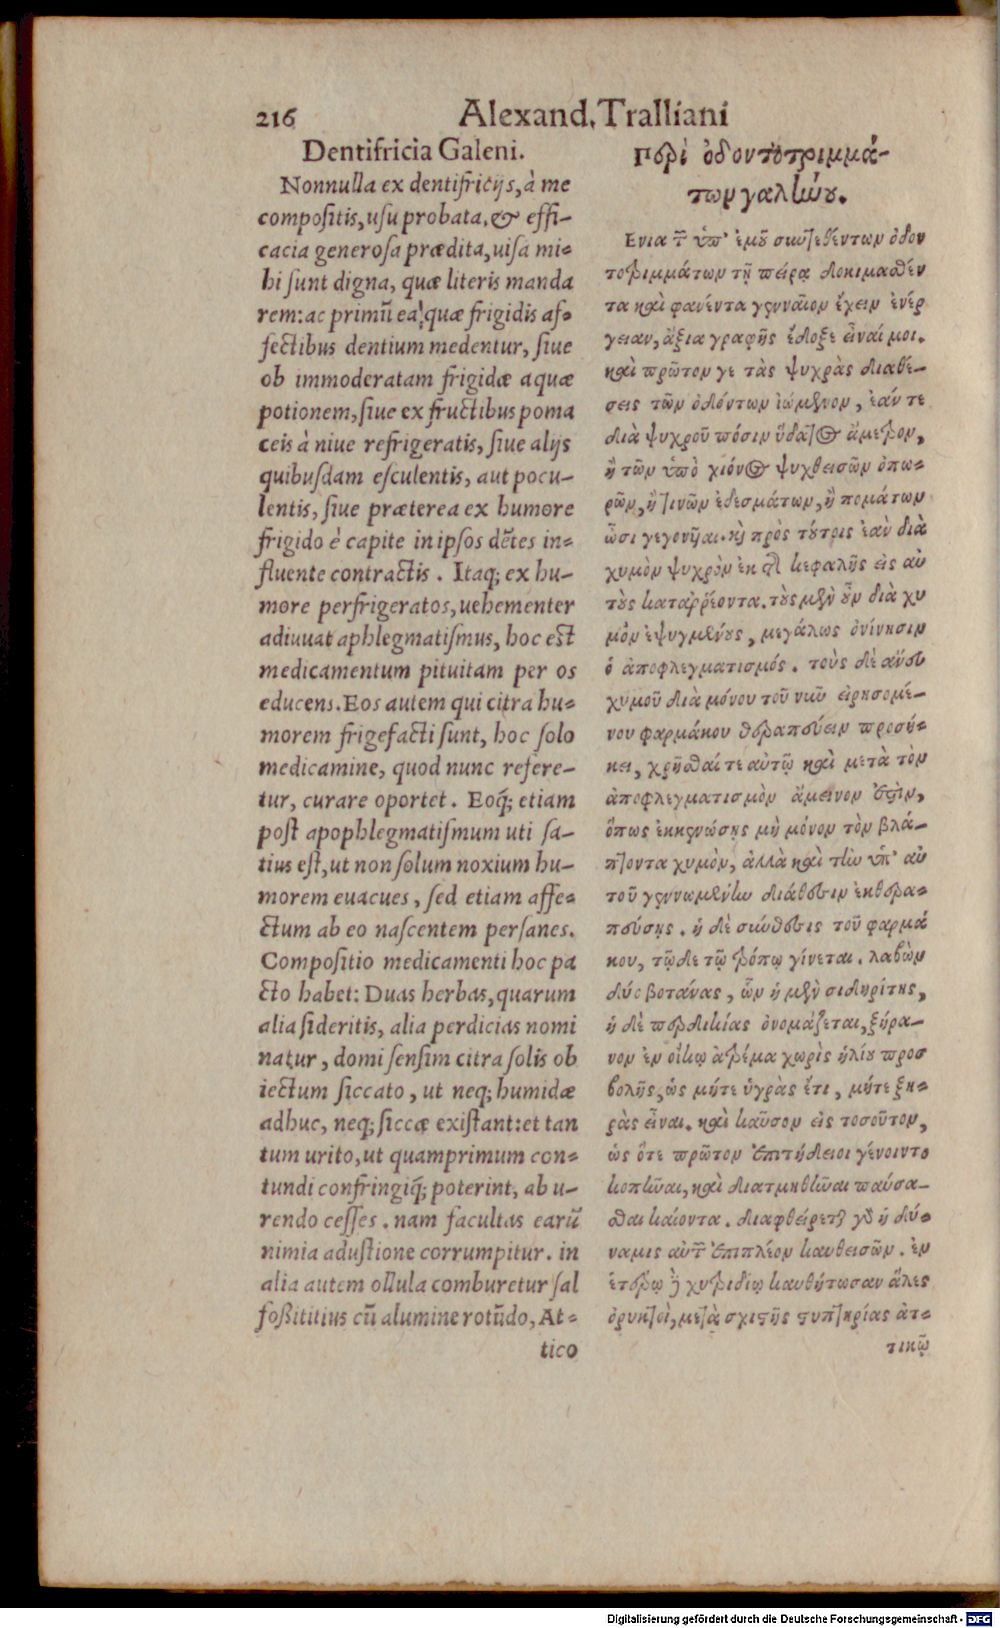 216 Alexand. Tralliani
Dentifricia Galeni.
Nonnulla ex dentifricijs, à me
compositis, usu probata, & effi-
cacia generosa prædita, uisa mi-
hi sunt digna, quæ literis manda
rem: ac primũ ea, quæ frigidis af-
fectibus dentium medentur, siue
ob immoderatam frigidæ aquæ
potionem, siue ex fructibus poma
ceis à niue refrigeratis, siue alijs
quibusdam esculentis, aut pocu-
lentis, siue præterea ex humore
frigido è capite in ipsos dẽtes in-
fluente contractis. Itaq; ex hu-
more perfrigeratos, uehementer
adiuuat aphlegmatismus, hoc est
medicamentum pituitam per os
educens. Eos autem qui citra hu-
morem frigefacti sunt, hoc solo
medicamine, quod nunc refere-
tur, curare oportet. Eoq́; etiam
post apophlegmatismum uti sa-
tius est, ut non solum noxium hu-
morem euacues, sed etiam affe-
ctum ab eo nascentem persanes.
Compositio medicamenti hoc pa
cto habet: Duas herbas, quarum
alia sideritis, alia perdicias nomi
natur, domi sensim citra solis ob
iectum siccato, ut neq; humidæ
adhuc, neq; siccæ existant: et tan
tum urito, ut quamprimum con-
tundi confringiq́; poterint, ab u-
rendo cesses. nam facultas earũ
nimia adustione corrumpitur. in
alia autem ollula comburetur sal
foßititius cũ alumine rotũdo, At-
tico
Περὶ ὀδοντοτριμμά-
των γαληνοῦ.
Ενια τῶν ὑπ' ἐμοῦ συντεθέντων ὀδον
τοτριμμάτων τῇ πείρᾳ δοκιμασθέν
τα καὶ φανέντα γενναῖον ἔχειν ἐνέρ
γειαν, ἄξια γραφῆς ἔδοξε εἶναί μοι.
καὶ πρῶτον γε τὰς ψυχρὰς διαθέ-
σεις τῶν ὀδόντων ἰώμενον, ἐάν τε
διὰ ψυχροῦ πόσιν ὕδατος ἄμετρον,
ἢ τῶν ὑπὸ χιόνος ψυχθεισῶν ὀπω-
ρῶν, ἢ τινῶν ἐδεσμάτων, ἢ πομάτων
ὦσι γεγονῆαι. καὶ πρὸς τούτοις ἐὰν διὰ
χυμὸν ψυχρὸν ἐκ τῆς κεφαλῆς εἰς αὐ
τοὺς καταῤῥέοντα. τοὺς μὲν οὖν διὰ χυ
μὸν ἐψυγμένους, μεγάλως ὀνίνησιν
ὁ ἀποφλεγματισμός. τοὺς δὲ ἄνευ
χυμοῦ διὰ μόνου τοῦ νῦν εἰρησομέ-
νου φαρμάκου θεραπεύειν προσή-
κει, χρῆσθαί τε αὐτῷ καὶ μετὰ τὸν
ἀποφλεγματισμὸν ἄμεινον ἐστὶν,
ὅπως ἐκκενώσῃς μὴ μόνον τὸν βλά-
πτοντα χυμὸν, ἀλλὰ καὶ τὴν ὑπ' αὐ
τοῦ γεννωμένην διάθεσιν ἐκθερα-
πεύσῃς. ἡ δὲ σύνθεσις τοῦ φαρμά
κου, τῷδε τῷ τρόπῳ γίνεται. λαβὼν
δύο βοτάνας, ὧν ἡ μὲν σιδηρίτης,
ἡ δὲ περδικίας ὀνομάζεται, ξήρα-
νον ἐν οἴκῳ ἀτρέμα χωρὶς ἡλίου προσ
βολῆς, ὡς μήτε ὑγρὰς ἔτι, μήτε ξη-
ρὰς εἶναι. καὶ καῦσον εἰς τοσοῦτον,
ὡς ὅτε πρῶτον ἐπιτήδειοι γένοιντο
κοπῆναι, καὶ διατμηθῆναι παύσα-
σθαι καίοντα. διαφθείρεται γὰρ ἡ δύ-
ναμις αὐτῶν ἐπιπλέον καυθεισῶν. ἐν
ἑτέρῳ δὲ χυτριδίῳ καυθήτωσαν ἅλες
ὀρυκτοὶ, μετὰ σχιστῆς στυπτηρίας ἀτ-
τικῷ
Digitalisierung gefördert durch die Deutsche Forschungsgemeinschaft - DFG